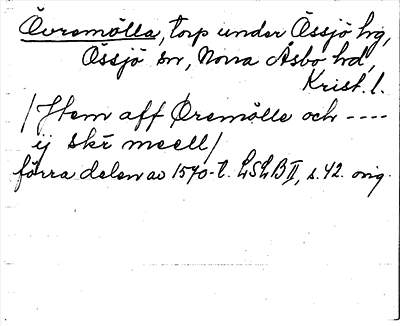 Övremölla, torp under Össjö hrg,
Össjö sn, Norra Åsbo hd,
Krist. l.
/Item aff Øremölle och ----
ij skr meell/
förra delen av 1570-t. LSLB II, s. 42. orig.